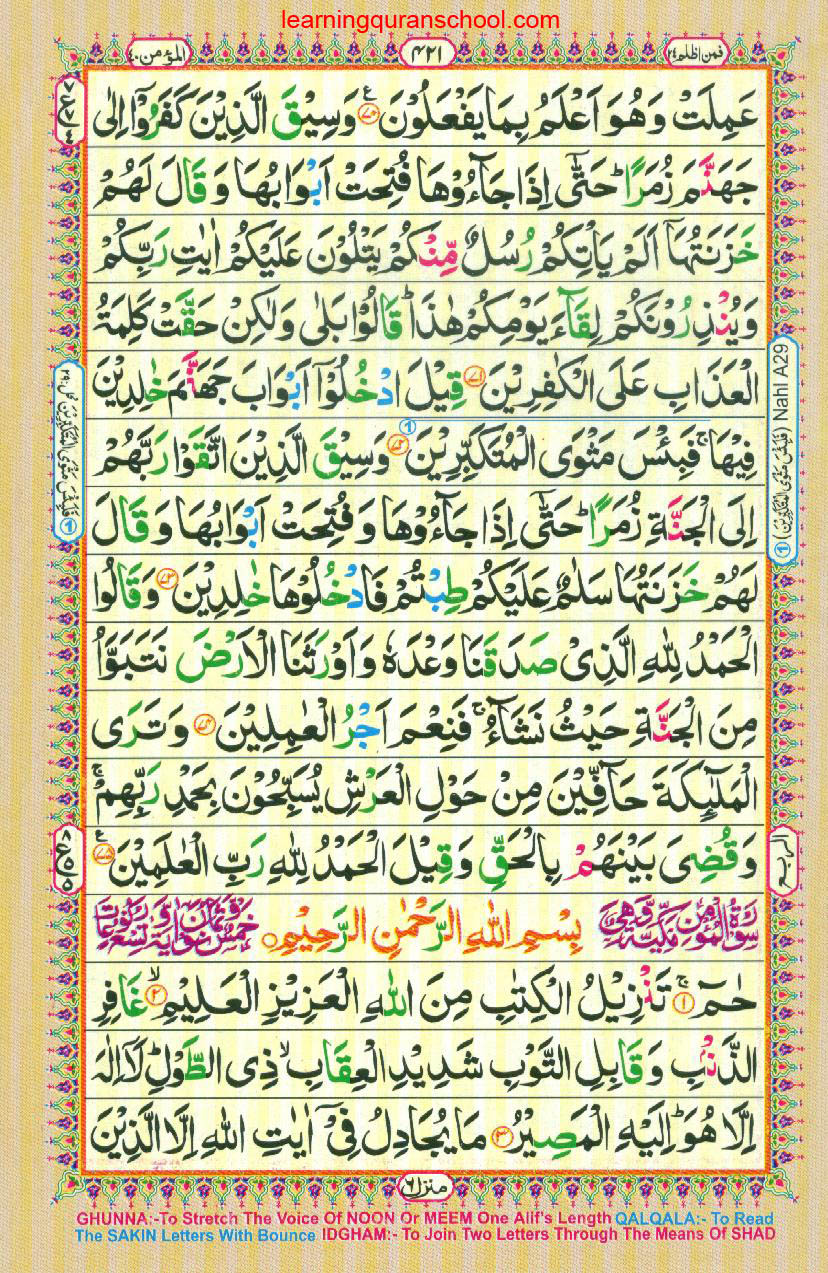 learningquranschool.com
فمن اظلم ٢٤
٤٢١
المؤمن ٤٠
عَمِلَتْ وَهُوَ اَعْلَمُ بِمَا يَفْعَلُوْنَ ۧ۝۷۰ وَسِيْقَ الَّذِيْنَ كَفَرُوْۤا اِلٰى
جَهَنَّمَ زُمَرًاؕ حَتّٰۤى اِذَا جَآءُوْهَا فُتِحَتْ اَبْوَابُهَا وَقَالَ لَهُمْ
خَزَنَتُهَاۤ اَلَمْ يَاْتِكُمْ رُسُلٌ مِّنْكُمْ يَتْلُوْنَ عَلَيْكُمْ اٰيٰتِ رَبِّكُمْ
وَيُنْذِرُوْنَكُمْ لِقَآءَ يَوْمِكُمْ هٰذَاؕ قَالُوْا بَلٰى وَلٰكِنْ حَقَّتْ كَلِمَةُ
الْعَذَابِ عَلَى الْكٰفِرِيْنَ ۝۷۱ قِيْلَ ادْخُلُوْۤا اَبْوَابَ جَهَنَّمَ خٰلِدِيْنَ
فِيْهَاۚ فَبِئْسَ مَثْوَى الْمُتَكَبِّرِيْنَ ۝۷۲ وَسِيْقَ الَّذِيْنَ اتَّقَوْا رَبَّهُمْ
اِلَى الْجَنَّةِ زُمَرًاؕ حَتّٰۤى اِذَا جَآءُوْهَا وَفُتِحَتْ اَبْوَابُهَا وَقَالَ
لَهُمْ خَزَنَتُهَا سَلٰمٌ عَلَيْكُمْ طِبْتُمْ فَادْخُلُوْهَا خٰلِدِيْنَ ۝۷۳ وَقَالُوا
الْحَمْدُ لِلّٰهِ الَّذِيْ صَدَقَنَا وَعْدَهٗ وَاَوْرَثَنَا الْاَرْضَ نَتَبَوَّاُ
مِنَ الْجَنَّةِ حَيْثُ نَشَآءُۚ فَنِعْمَ اَجْرُ الْعٰمِلِيْنَ ۝۷۴ وَتَرَى
الْمَلٰٓئِكَةَ حَآفِّيْنَ مِنْ حَوْلِ الْعَرْشِ يُسَبِّحُوْنَ بِحَمْدِ رَبِّهِمْۚ
وَقُضِيَ بَيْنَهُمْ بِالْحَقِّ وَقِيْلَ الْحَمْدُ لِلّٰهِ رَبِّ الْعٰلَمِيْنَ ۧ۝۷۵
سُوْرَةُ الْمُؤْمِنِ مَكِّيَّةٌ وَّهِيَ
بِسْمِ اللّٰهِ الرَّحْمٰنِ الرَّحِيْمِ
خَمْسٌ وَّثَمَانُوْنَ اٰيَةً وَّتِسْعُ رُكُوْعَاتٍ
حٰمٓ ۚ۝۱ تَنْزِيْلُ الْكِتٰبِ مِنَ اللّٰهِ الْعَزِيْزِ الْعَلِيْمِ ۙ۝۲ غَافِرِ
الذَّنْۢبِ وَقَابِلِ التَّوْبِ شَدِيْدِ الْعِقَابِۙ ذِى الطَّوْلِؕ لَاۤ اِلٰهَ
اِلَّا هُوَؕ اِلَيْهِ الْمَصِيْرُ ۝۳ مَا يُجَادِلُ فِيْۤ اٰيٰتِ اللّٰهِ اِلَّا الَّذِيْنَ
Nahl A29
منزل ٦
GHUNNA:-To Stretch The Voice Of NOON Or MEEM One Alif's Length QALQALA:- To Read
The SAKIN Letters With Bounce IDGHAM:- To Join Two Letters Through The Means Of SHAD